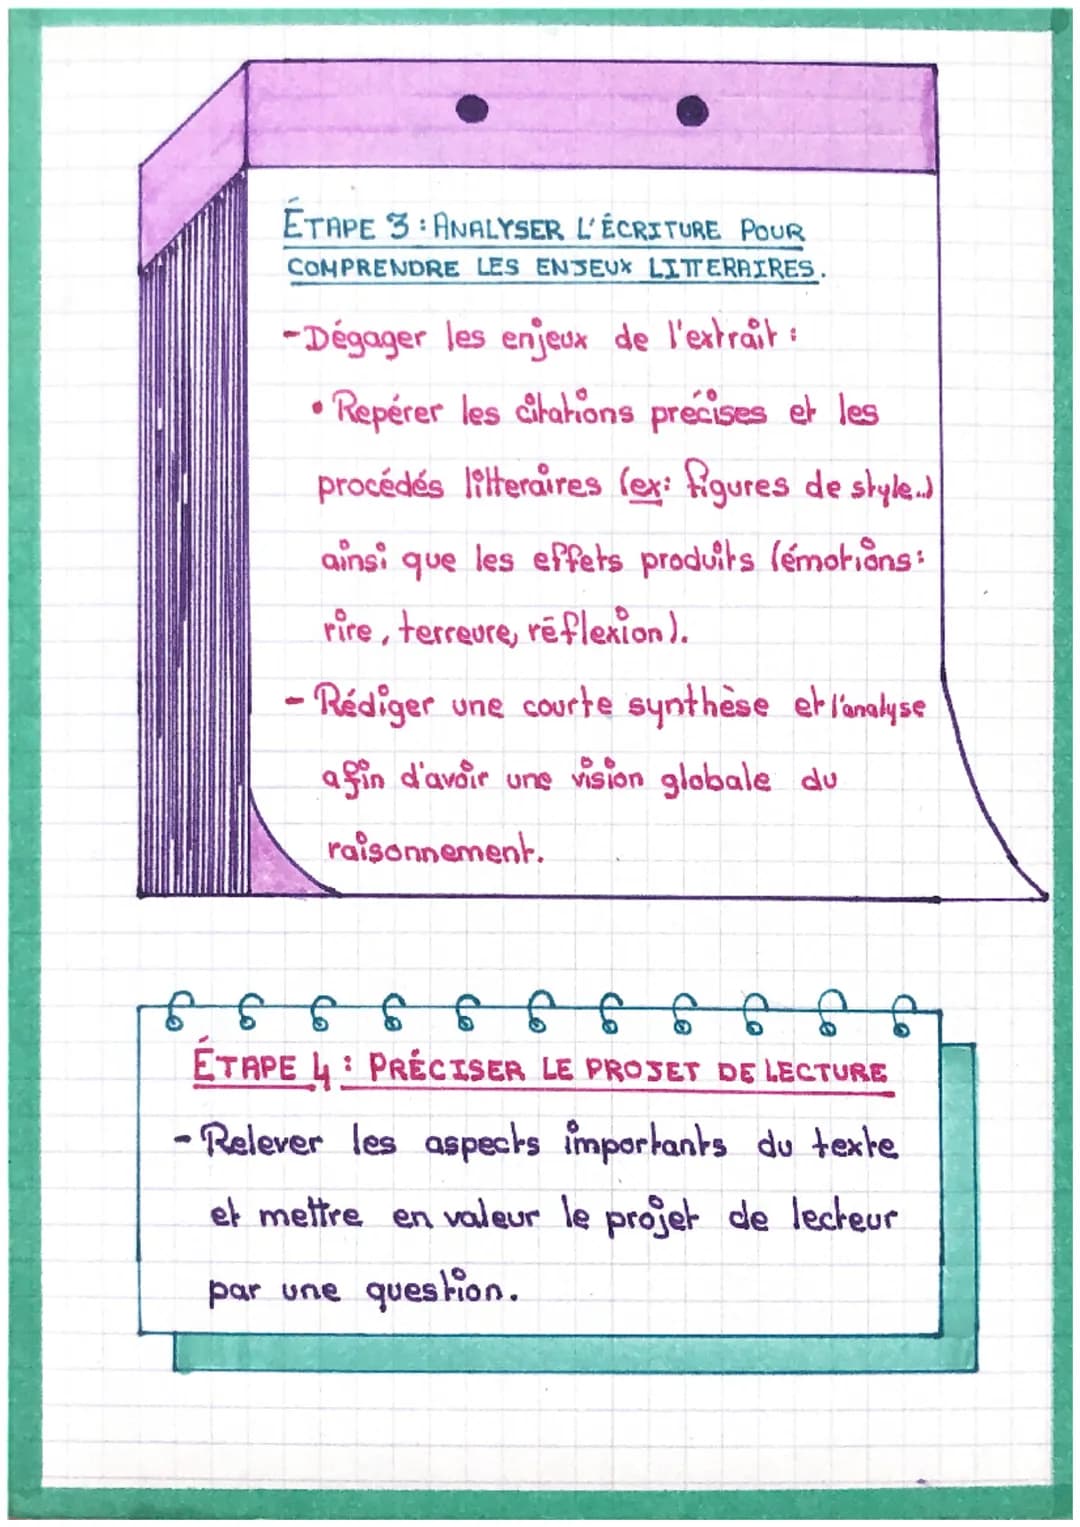 ÉTAPE 3 : ANALYSER L'ÉCRITURE POUR
COMPRENDRE LES ENJEUX LITTERAIRES.
- Dégager les enjeux de l'extrait :
• Repérer les citations précises et les
procédés litteraires (ex: figures de style..)
ainsi que les effets produits (émotions :
rire, terreure, réflexion).
- Rédiger une courte synthèse et l'analyse
afin d'avoir une vision globale du
raisonnement.
ÉTAPE 4 : PRÉCISER LE PROJET DE LECTURE
- Relever les aspects importants du texte
et mettre en valeur le projet de lecteur
par une question.